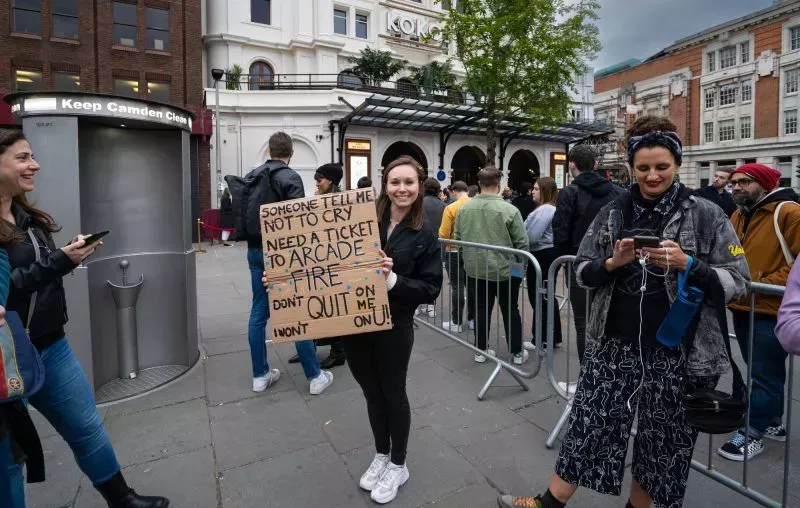 KOKO
Keep Camden Clean
SOMEONE TELL ME
NOT TO CRY
NEED A TICKET
TO ARCADE
FIRE
DON'T QUIT ON ME
I WON'T ON U!